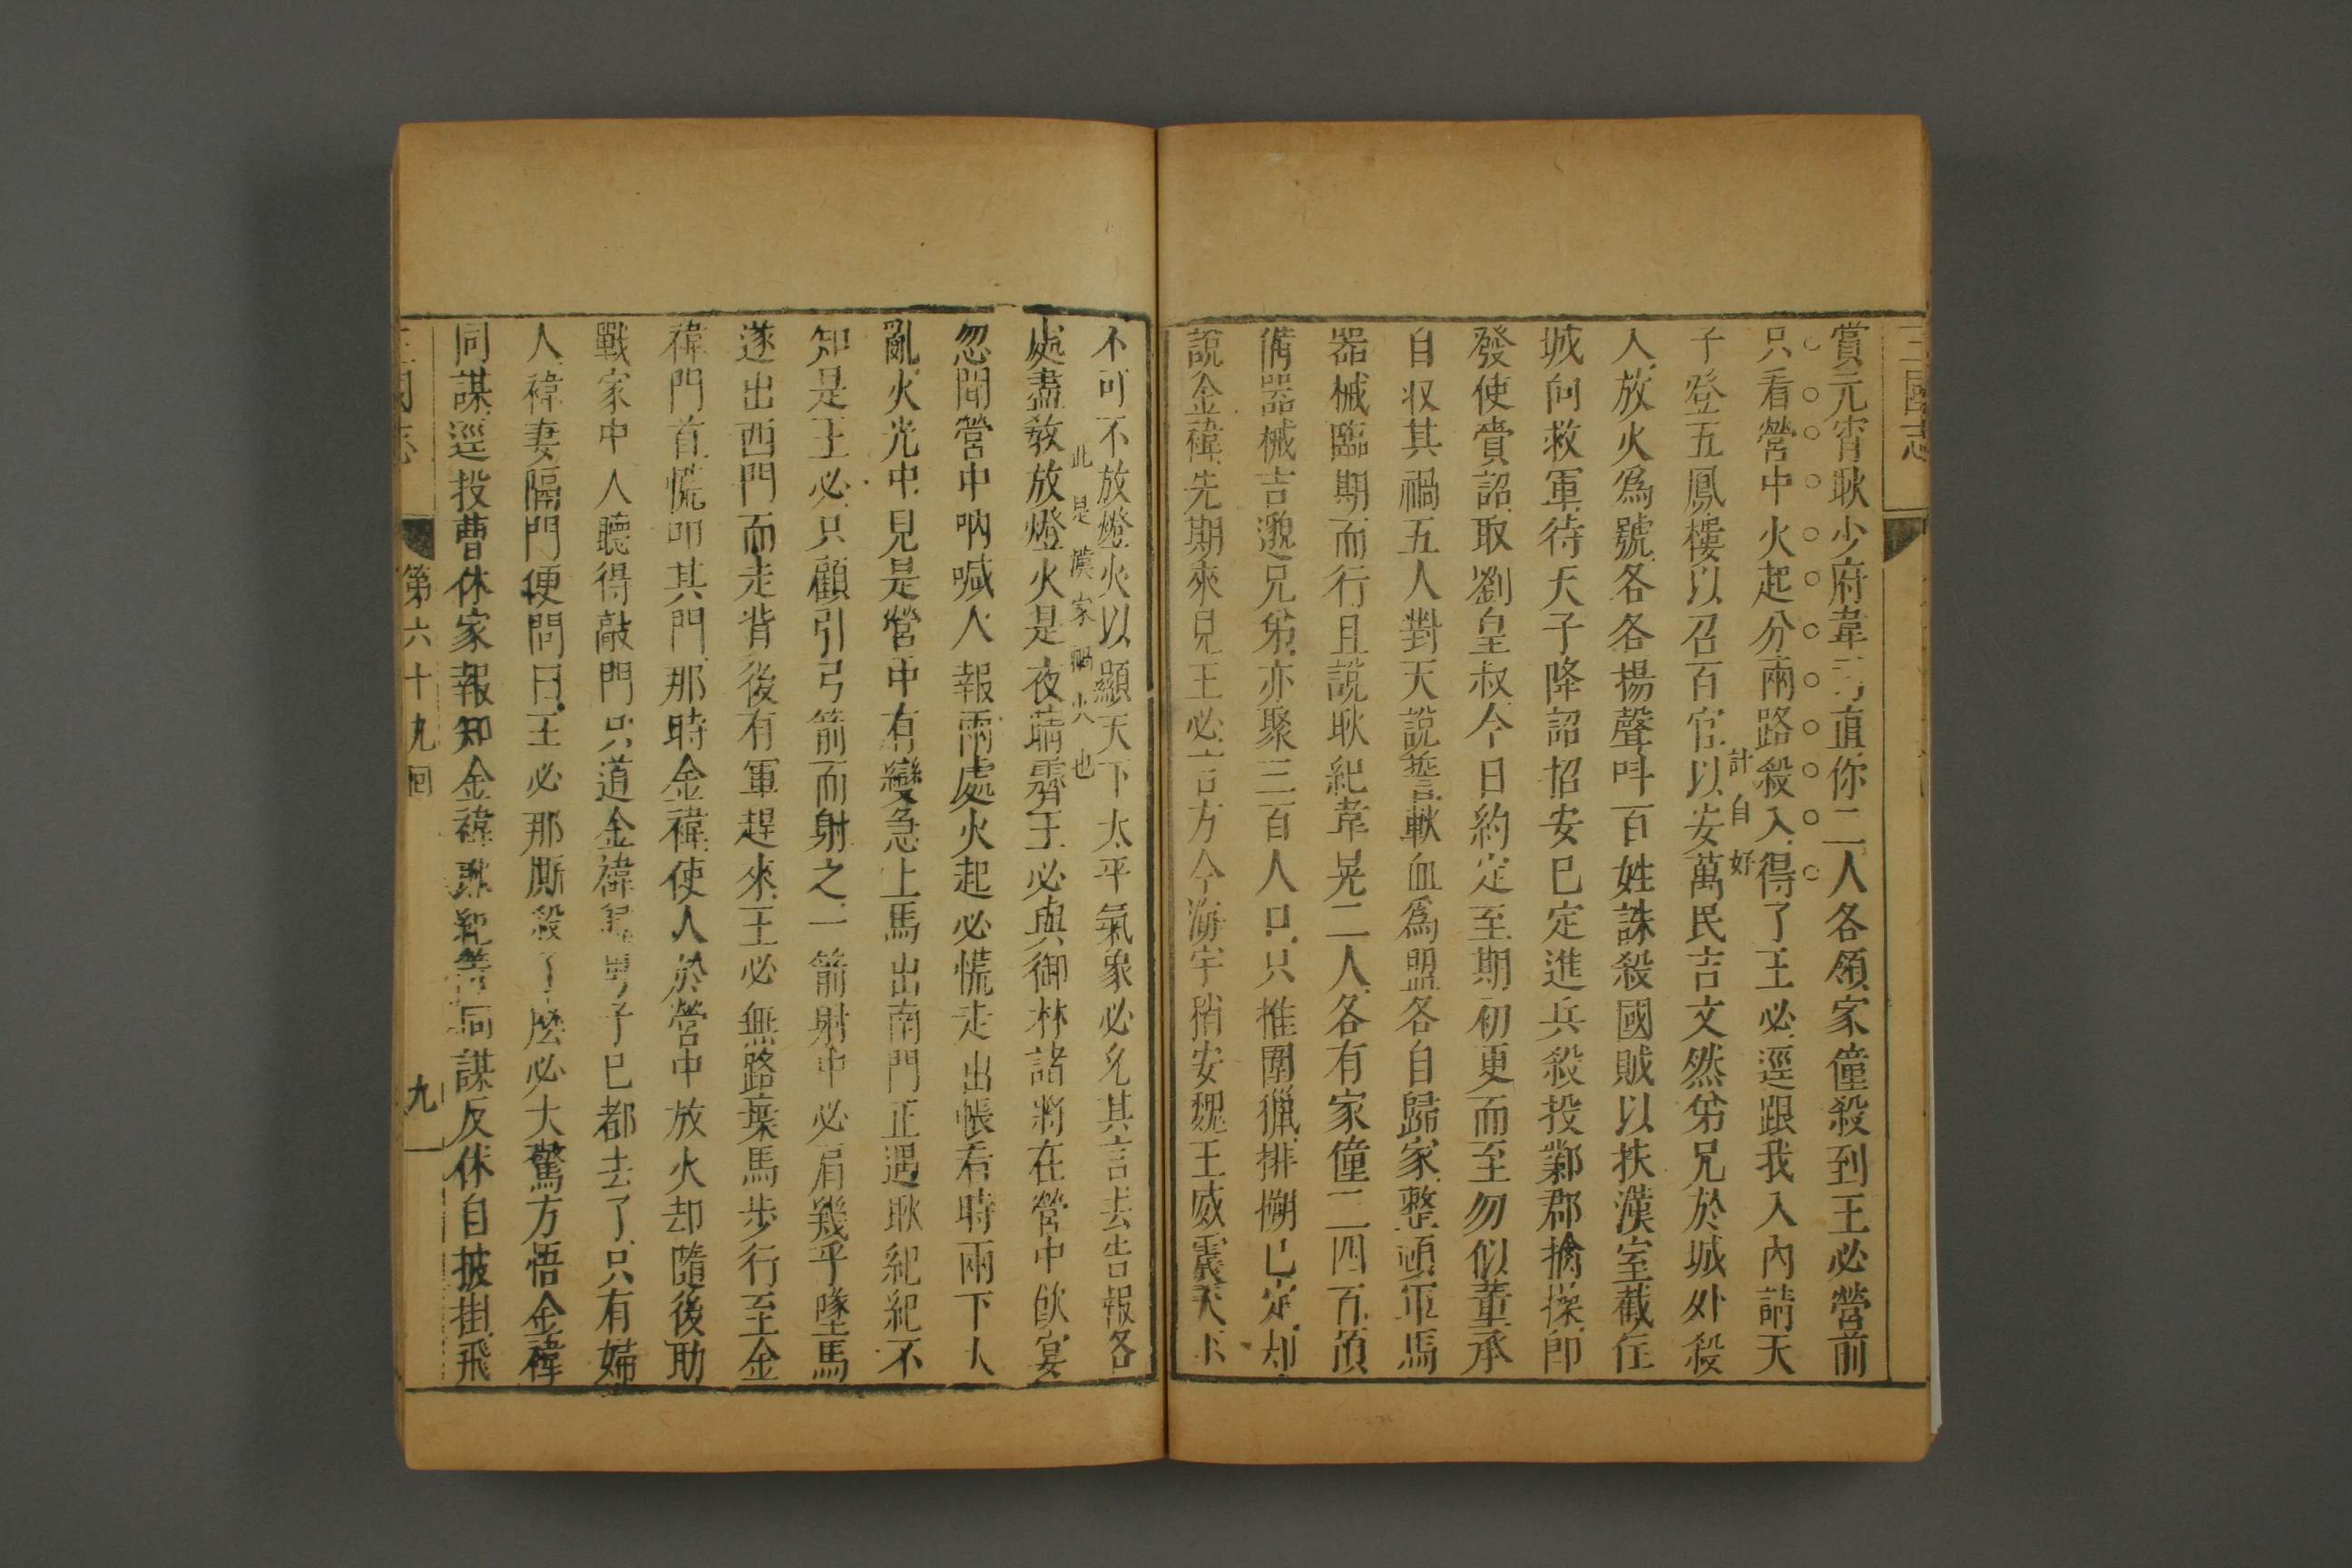 三國志
賞元宵耿少府韋司直你二人各領家僮殺到王必營前
只看營中火起分兩路殺入得了王必逕跟我入內請天
計自好
子登五鳳樓以召百官以安萬民吉文然弟兄於城外殺
入放火爲號各各揚聲叫百姓誅殺國賊以扶漢室截住
城向救軍待天子降詔招安已定進兵殺投鄴郡擒操即
發使賫詔取劉皇叔今日約定至期初更而至勿似董承
自収其禍五人對天說誓歃血爲盟各自歸家整頓軍馬
器械臨期而行且說耿紀韋晃二人各有家僮三四百預
俻器械吉邈兄弟亦聚三百人口只推圍獵排搠已定却
說金褘先期來見王必言方今海宇稍安魏王威震天下
不可不放燈火以顯天下太平氣象必允其言去告報各
此是漢家禍火也
處盡敎放燈火是夜晴霽王必與御林諸將在營中飲宴
忽聞營中吶喊人報兩處火起必慌走出帳看時兩下人
亂火光中見是營中有變急上馬出南門正遇耿紀紀不
知是王必只顧引弓箭而射之一箭射中必肩幾乎墜馬
遂出西門而走背後有軍趕來王必無路棄馬步行至金
褘門首慌叩其門那時金褘使人於營中放火却隨後助
戰家中人聽得敲門只道金褘歸男子已都去了只有婦
人褘妻隔門便問曰王必那厮殺了麽必大驚方悟金褘
同謀逕投曹休家報知金褘耿紀等同謀反休自披掛飛
三國志
第六十九回
九